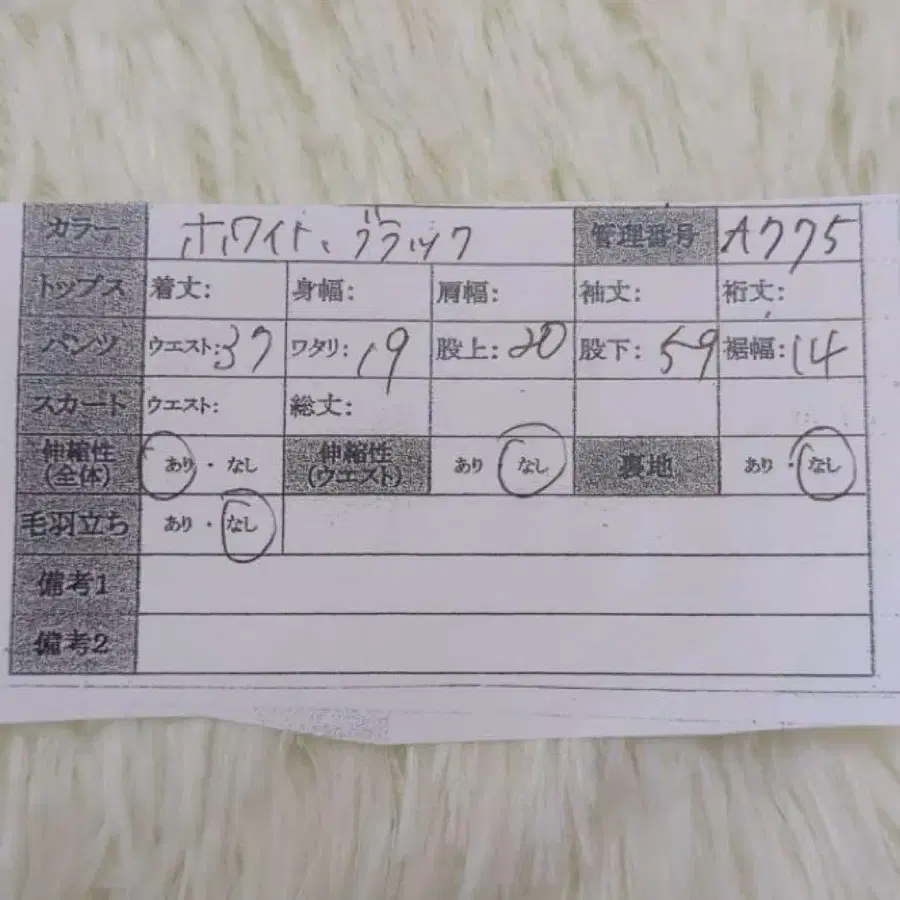 カラー ホワイト、ブラック 管理番号 A775
トップス 着丈: 身幅: 肩幅: 袖丈: 裄丈:
パンツ ウエスト:37 ワタリ:19 股上:20 股下:59 裾幅:14
スカート ウエスト: 総丈:
伸縮性(全体) あり・なし 伸縮性(ウエスト) あり なし 裏地 あり・なし
毛羽立ち あり・なし
備考1
備考2